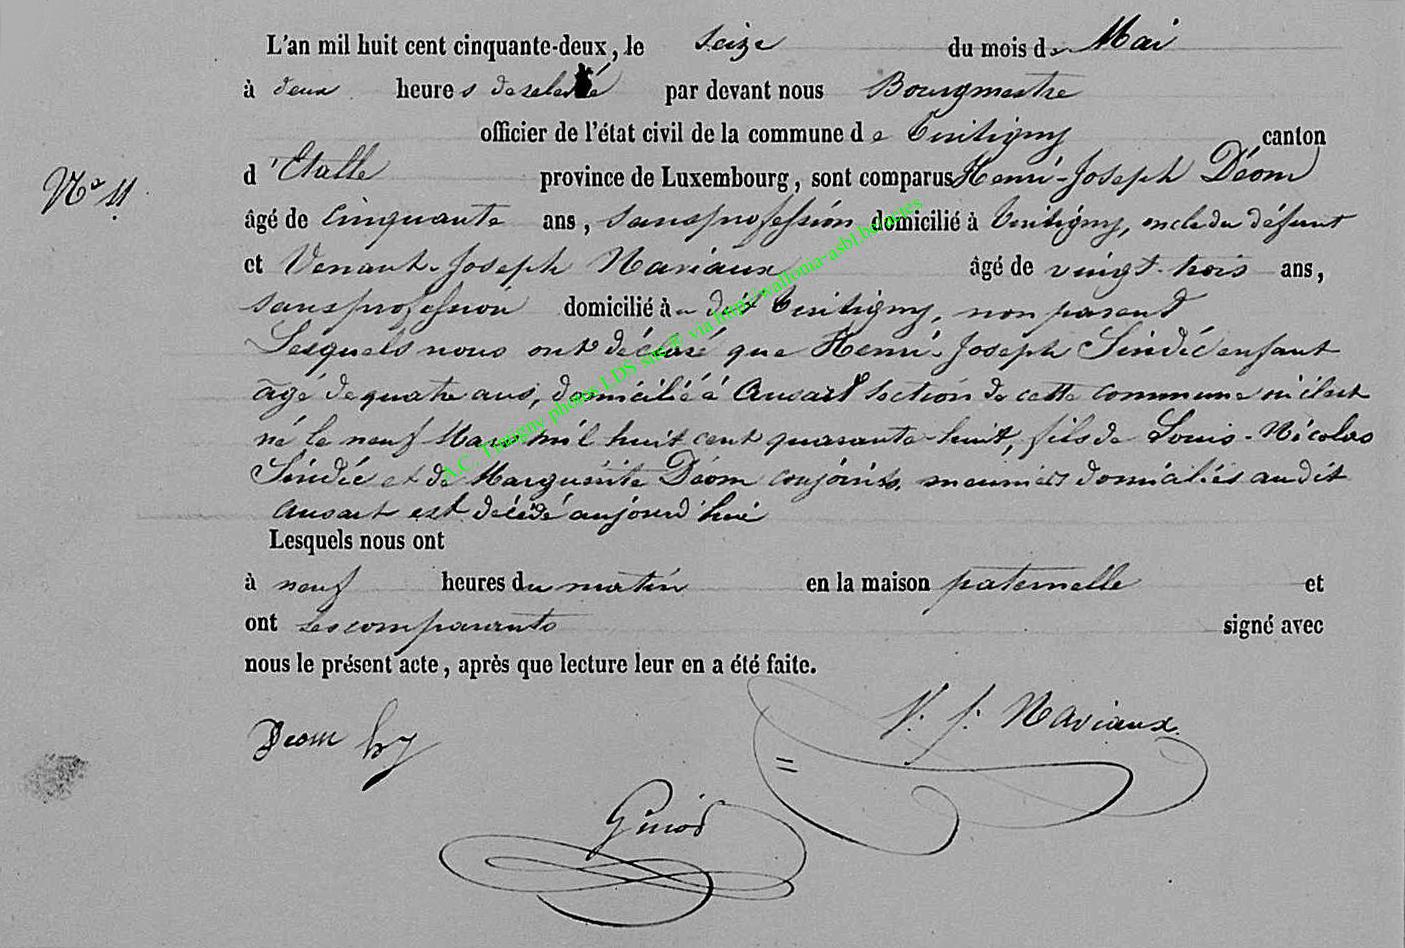 L'an mil huit cent cinquante-deux, le seize du mois de Mai
à deux heures de relevée par devant nous Bourgmestre
officier de l'état civil de la commune de Tintigny canton
d'Etalle province de Luxembourg, sont comparus Henri-Joseph Déom
N° 11.
âgé de cinquante ans, sans profession domicilié à Tintigny, oncle du défunt
et Venant-Joseph Naviaux âgé de vingt-trois ans,
sans profession domicilié à Tintigny, non parent
Lesquels nous ont déclaré que Henri-Joseph Sindic enfant
âgé de quatre ans, domicilié à Ansart section de cette commune où il est
né le neuf Mars mil huit cent quarante-huit, fils de Louis-Nicolas
Sindic et de Marguerite Déom conjoints, meuniers domiciliés audit
Ansart est décédé aujourd'hui
Lesquels nous ont
à neuf heures du matin en la maison paternelle et
ont les comparants signé avec
nous le présent acte, après que lecture leur en a été faite.
V. J. Naviaux
Deom hj
A.C. Tintigny photos LDS sur® via http://wallonia-asbl.be/actes